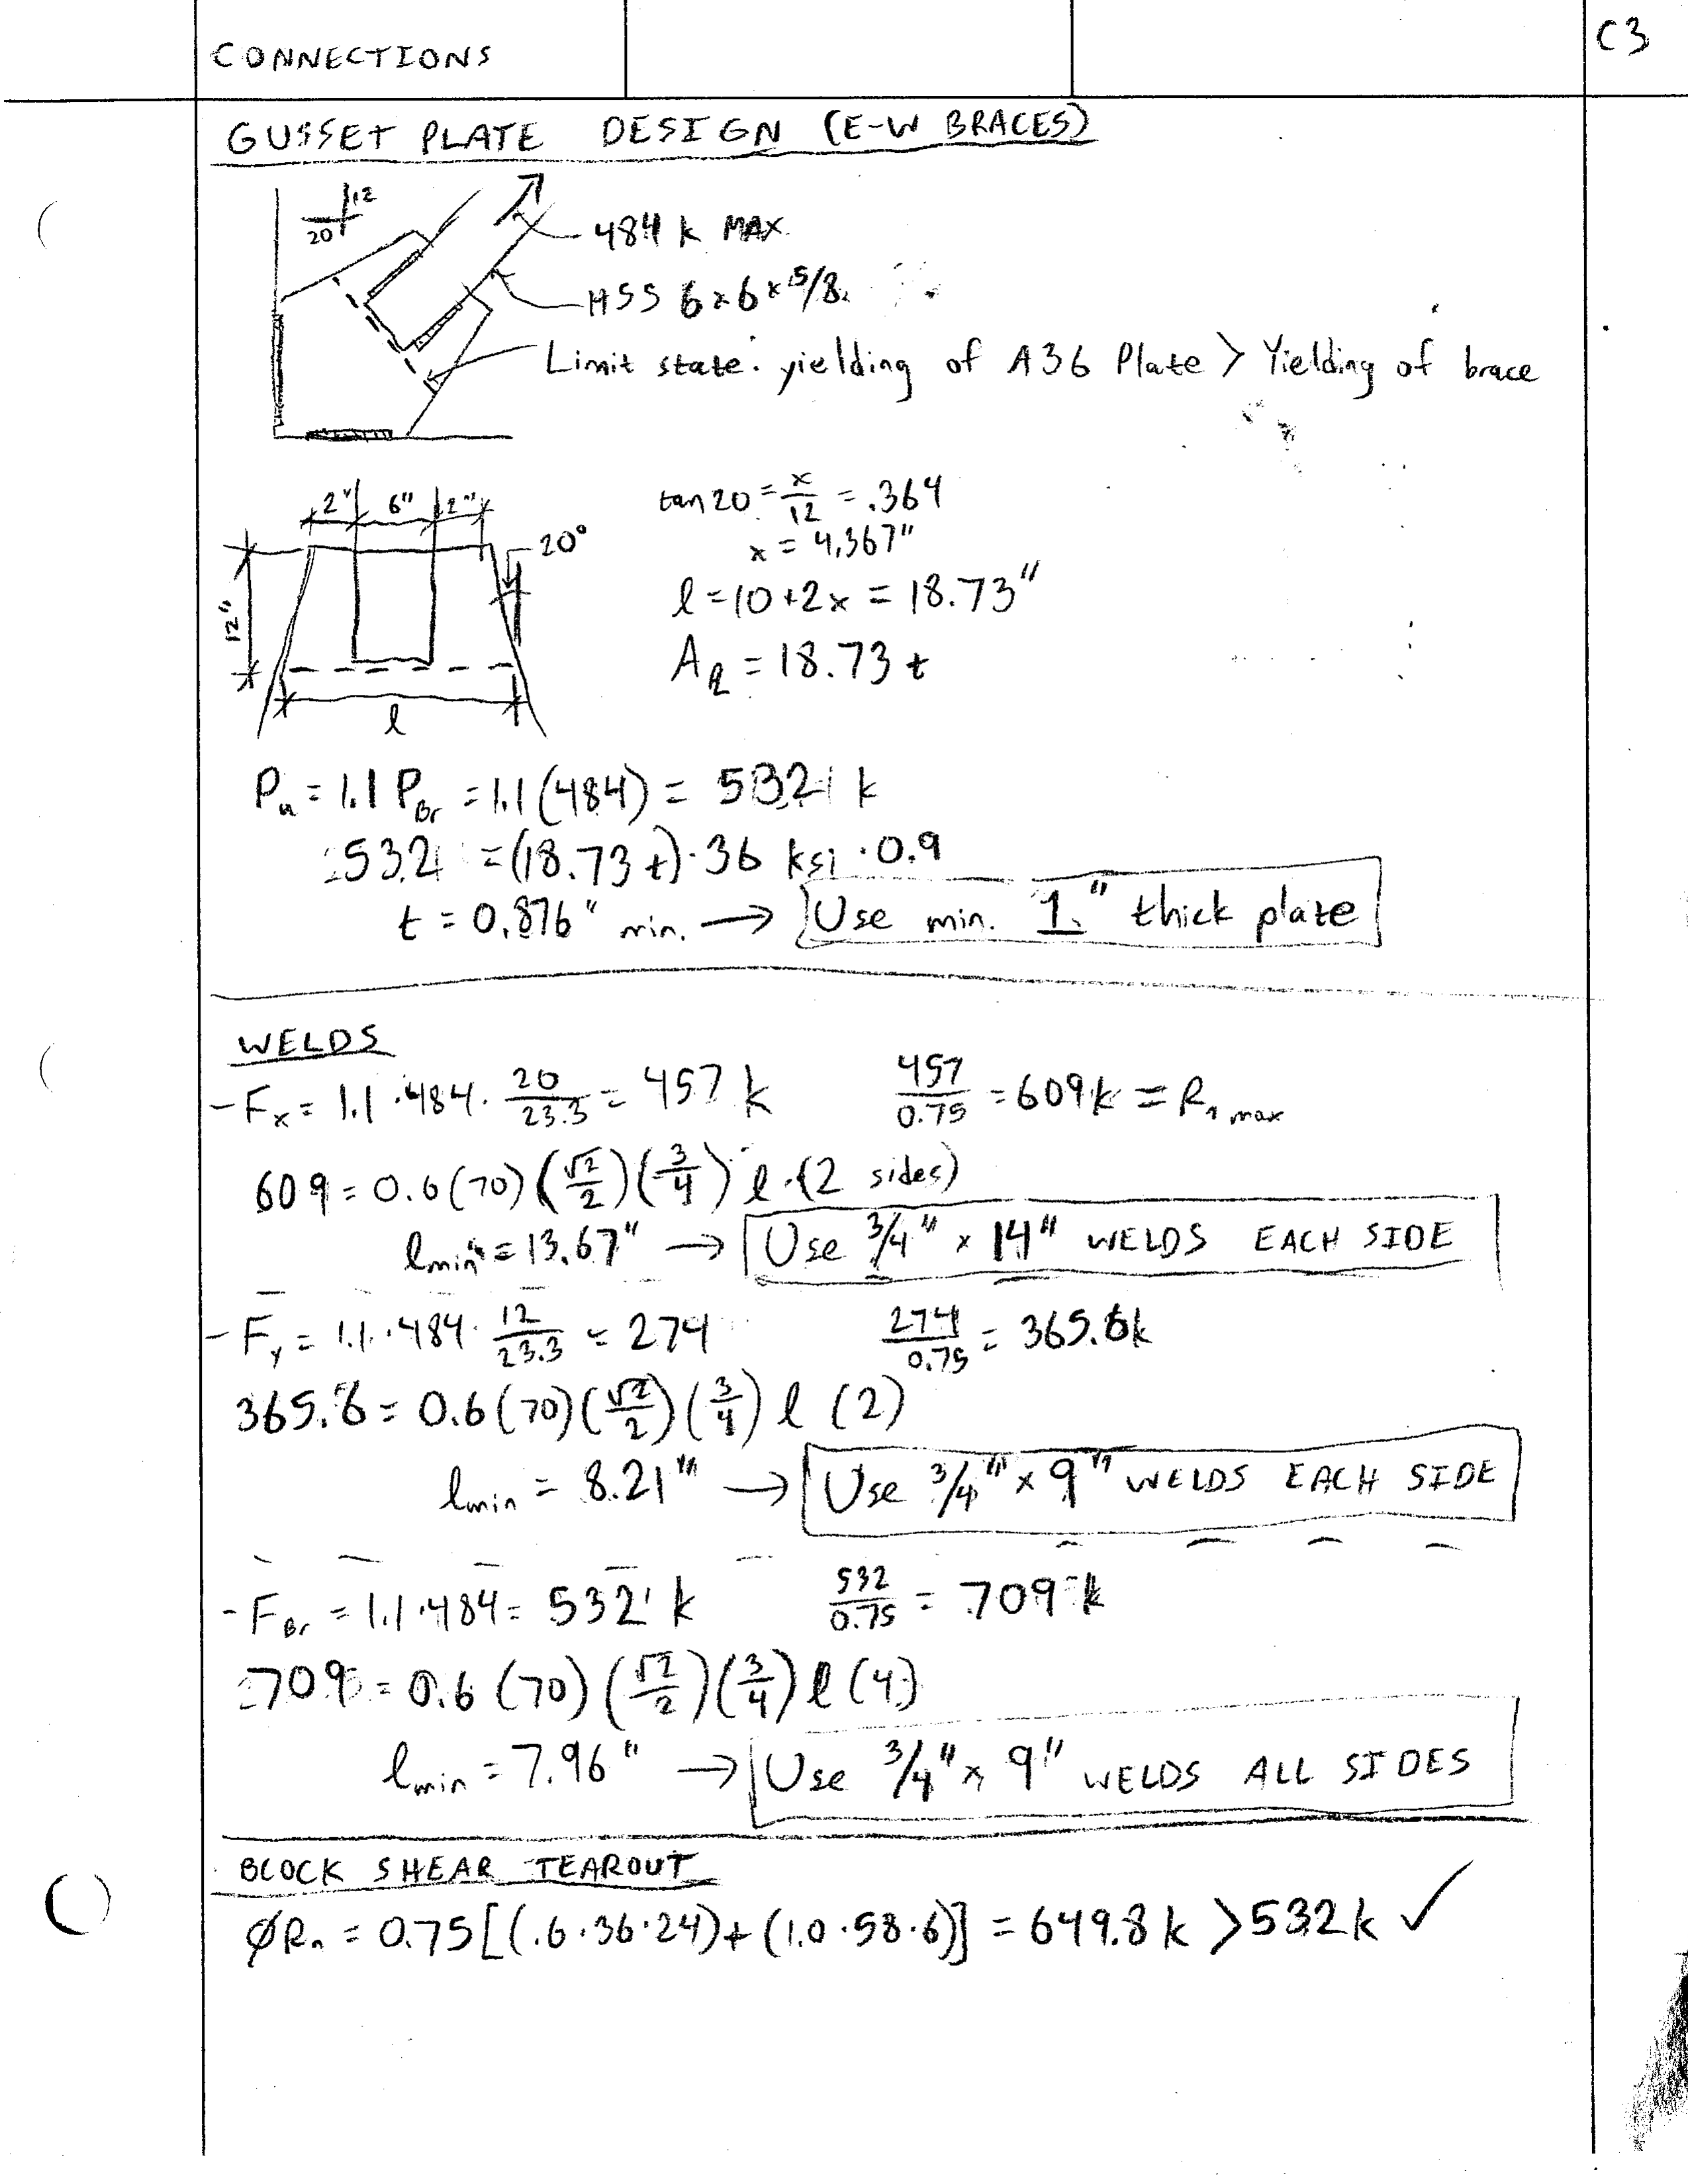 CONNECTIONS
C3
GUSSET PLATE DESIGN (E-W BRACES)
12
20
484 k MAX.
HSS 6x6x5/8
Limit state: yielding of A36 Plate > Yielding of brace
2" 6" 2"
20°
12"
l
tan20 = x/12 = .364
x = 4.367"
l = 10+2x = 18.73"
A = 18.73 t
Pu = 1.1 PBr = 1.1(484) = 532 k
532 = (18.73 t)·36 ksi·0.9
t = 0.876" min. → Use min. 1" thick plate
WELDS
- Fx = 1.1·484· 20/23.3 = 457 k 457/0.75 = 609 k = Rn max
609 = 0.6(70)(√2/2)(3/4) l·(2 sides)
lmin = 13.67" → Use 3/4" x 14" WELDS EACH SIDE
- Fy = 1.1·484· 12/23.3 = 274 274/0.75 = 365.6k
365.6 = 0.6(70)(√2/2)(3/4) l (2)
lmin = 8.21" → Use 3/4" x 9" WELDS EACH SIDE
- FBr = 1.1·484 = 532 k 532/0.75 = 709 k
709 = 0.6(70)(√2/2)(3/4) l (4)
lmin = 7.96" → Use 3/4" x 9" WELDS ALL SIDES
BLOCK SHEAR TEAROUT
ØRn = 0.75[(.6·36·24)+(1.0·58·6)] = 649.8 k > 532 k ✓